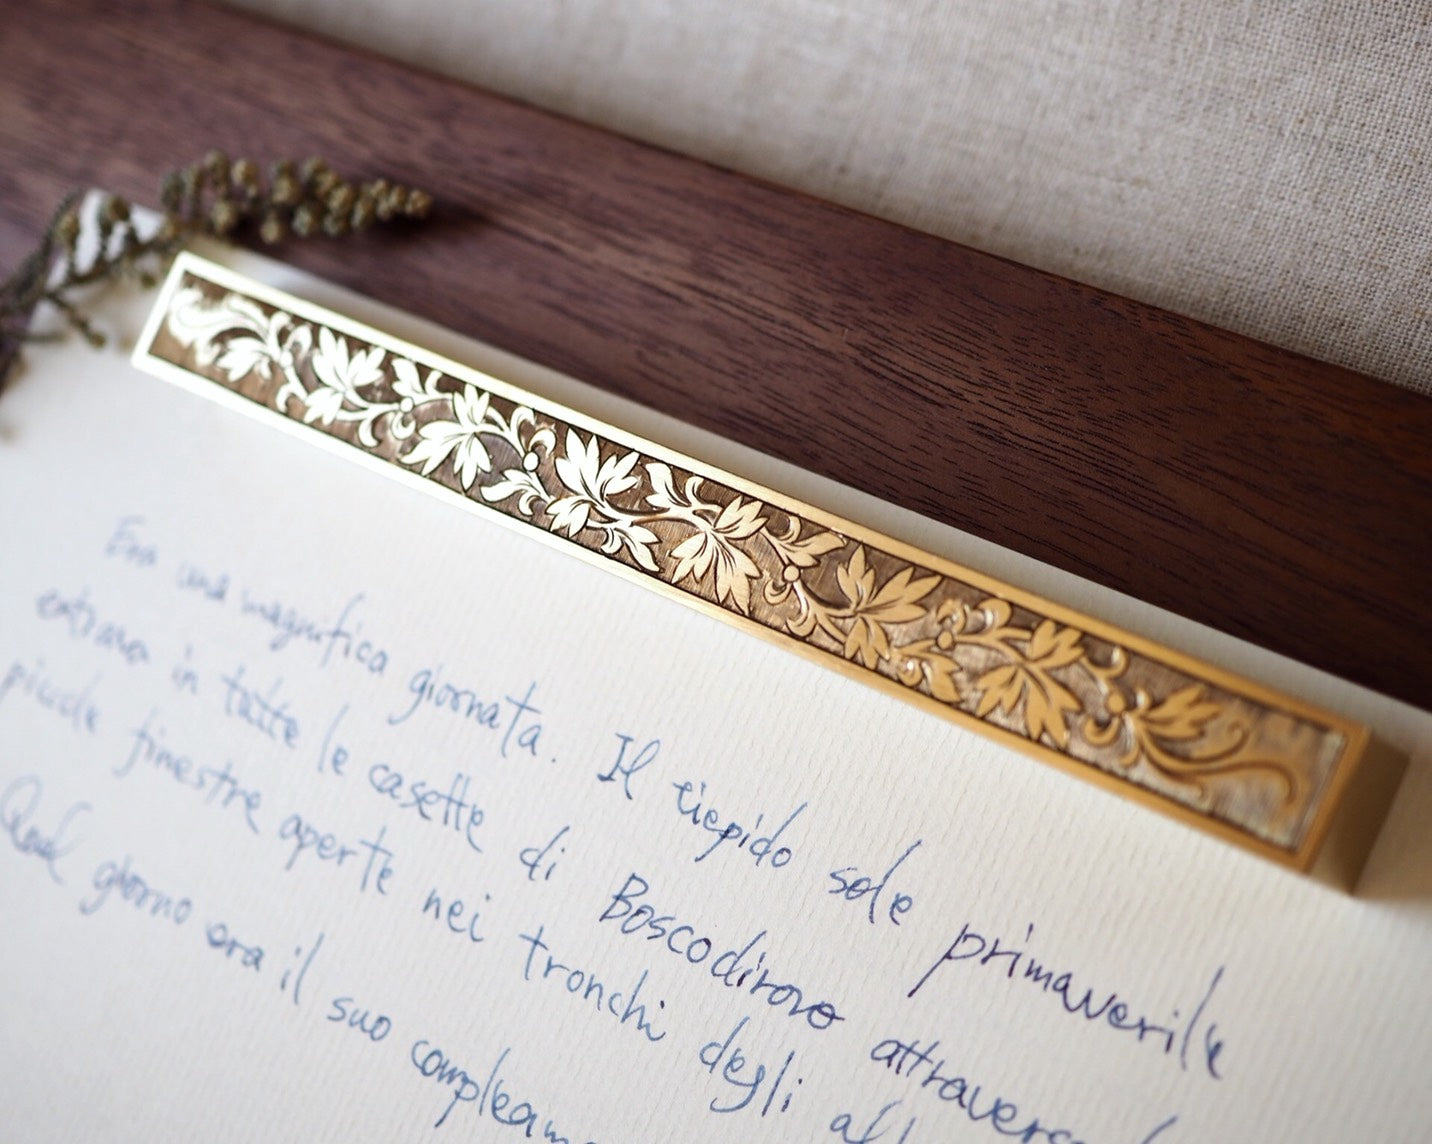 Era una magnifica giornata. Il tiepido sole primaverile
entrava in tutte le casette di Boscodirovo attraverso l
piccole finestre aperte nei tronchi degli al
Quel giorno era il suo complean